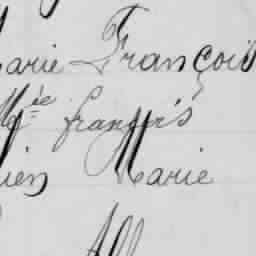 arie François
Mée françois
ien Marie
All